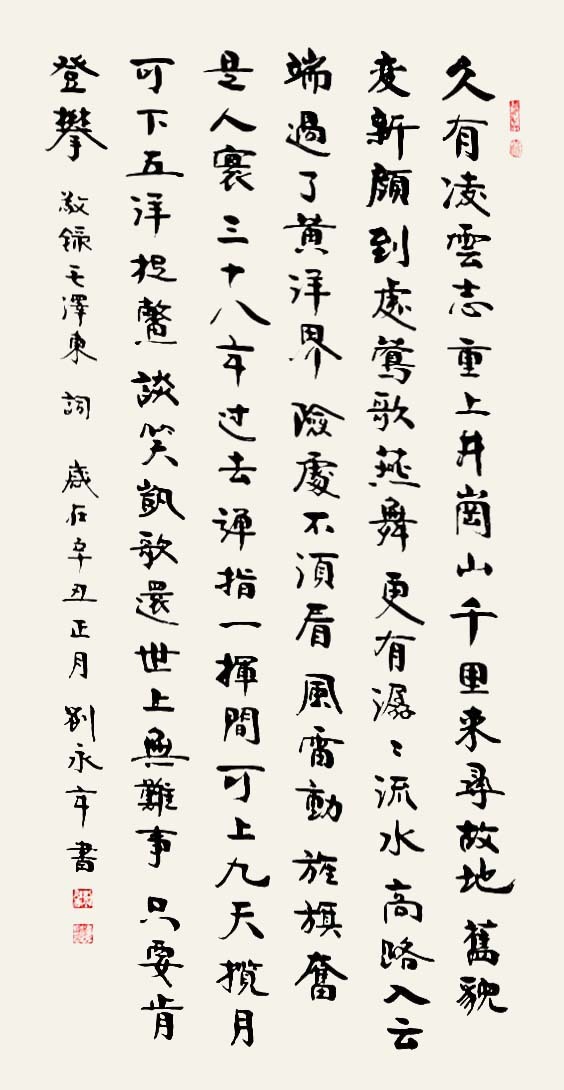 久有凌雲志重上井崗山千里来尋故地舊貌
变新顏到處鶯歌燕舞更有潺〻流水高路入云
端過了黄洋界險處不須看風雷動旌旗奮
是人寰三十八年过去彈指一揮間可上九天攬月
可下五洋捉鱉談笑凱歌還世上無難事只要肯
登攀 敬録毛澤東詞 歲在辛丑正月 劉永年書